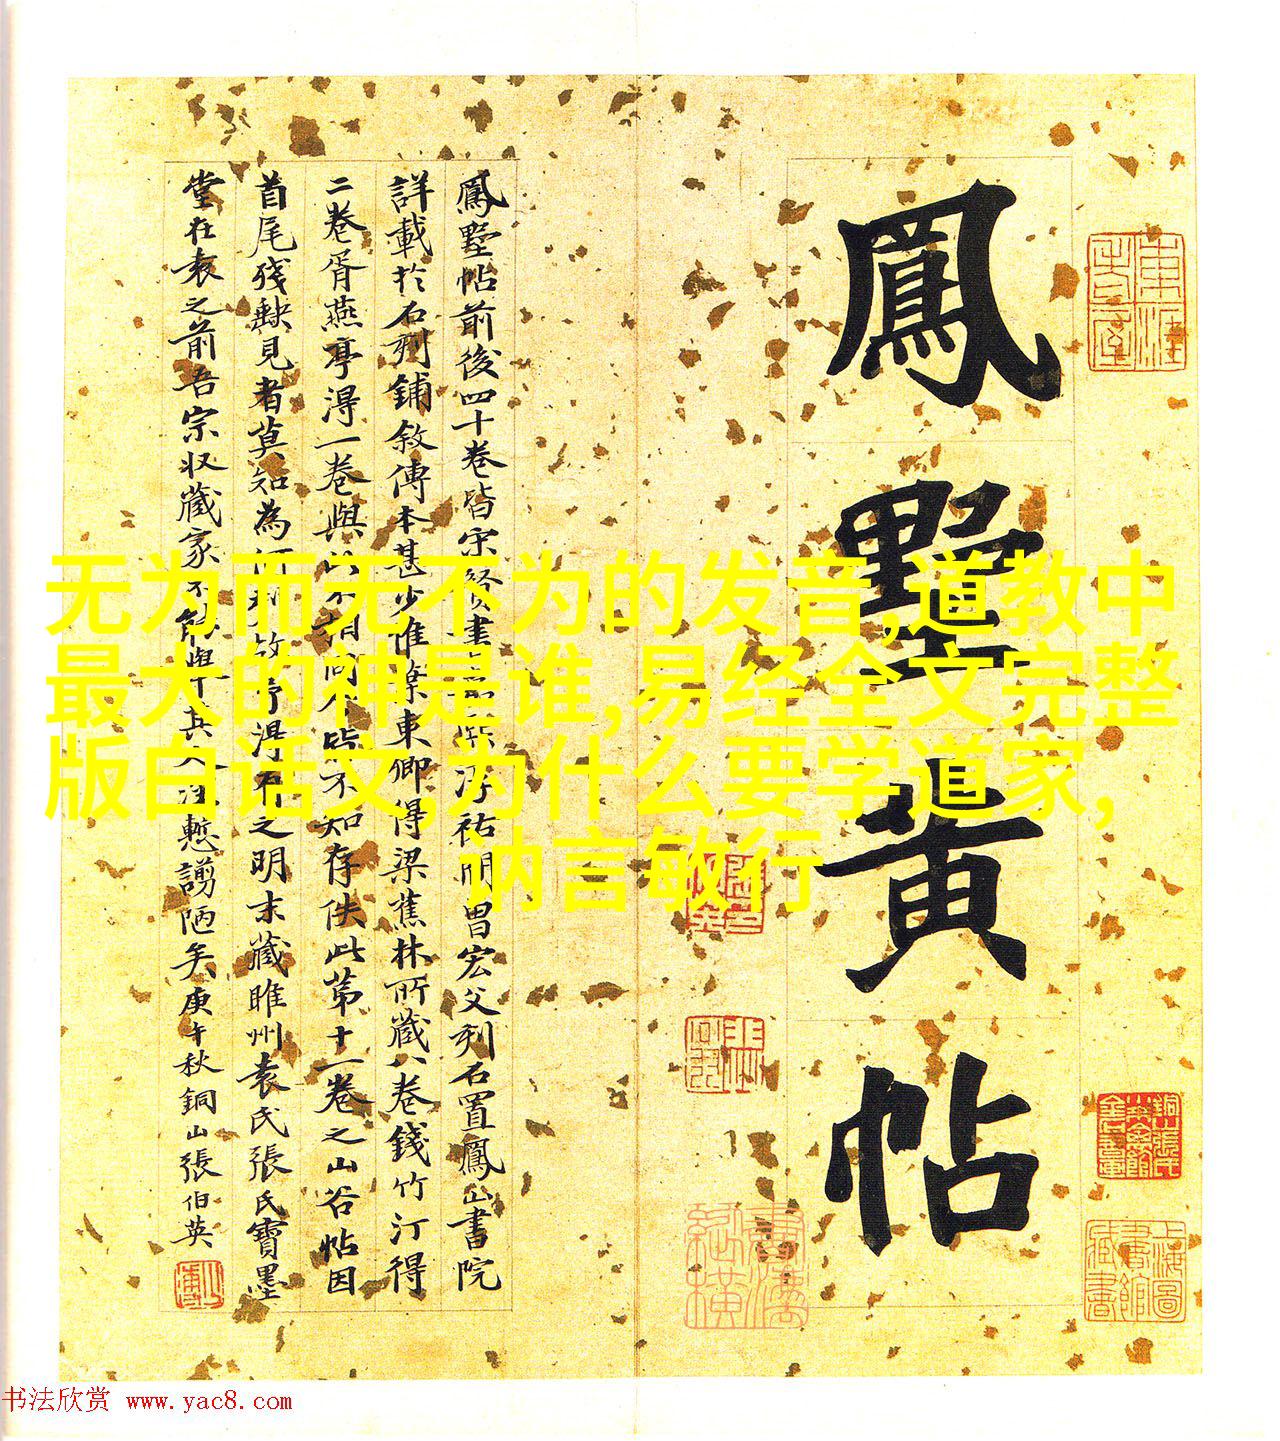 鳳墅黃帖
鳳墅帖前後四十卷皆宋賢書
祐 曾宏父刻石置鳳山書院
詳載於石刻鋪敘傳本甚少惟葉東卿得梁蕉林所藏八卷錢竹汀得
二卷胥燕亭得一卷與 不知存佚此第十一卷之山谷帖因
首尾殘缺見者莫知為何 故予得 之明末藏睢州袁氏張氏寶墨
堂在袁之前吾宗收藏家不能舉其 慙謭陋矣庚午秋銅山張伯英
无为而无不为的发音,道教中
最大的神是谁,易经全文完整
版白话文,为什么要学道家,
呐言敏行
书法欣赏 www.yac8.com